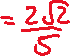 =2√2/5